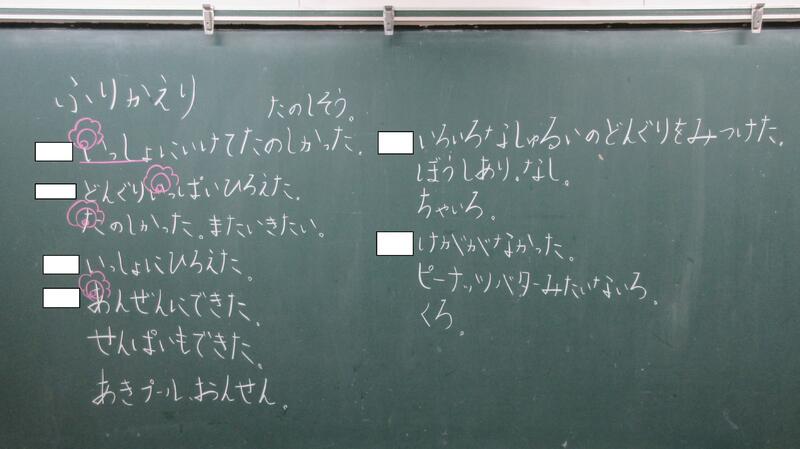 ふりかえり
たのしそう。
いっしょにいけてたのしかった。
どんぐりいっぱいひろえた。
たのしかった。またいきたい。
いっしょにひろえた。
あんぜんにできた。
せんぱいもできた。
あきプール、おんせん。
いろいろなしゅるいのどんぐりをみつけた。
ぼうしあり。なし。
ちゃいろ。
けががなかった。
ピーナッツバターみたいないろ。
くろ。